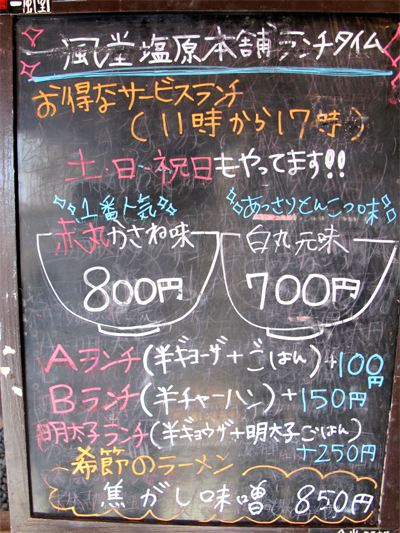 一風堂
一風堂塩原本舗ランチタイム
お得なサービスランチ
(11時から17時)
土・日・祝日もやってます!!
1番人気
あっさりとんこつ味
赤丸かさね味
白丸元味
800円
700円
Aランチ(半ギョーザ+ごはん)+100円
Bランチ(半チャーハン)+150円
明太子ランチ(半ギョウザ+明太子ごはん)
+250円
希節のラーメン
焦がし味噌 850円